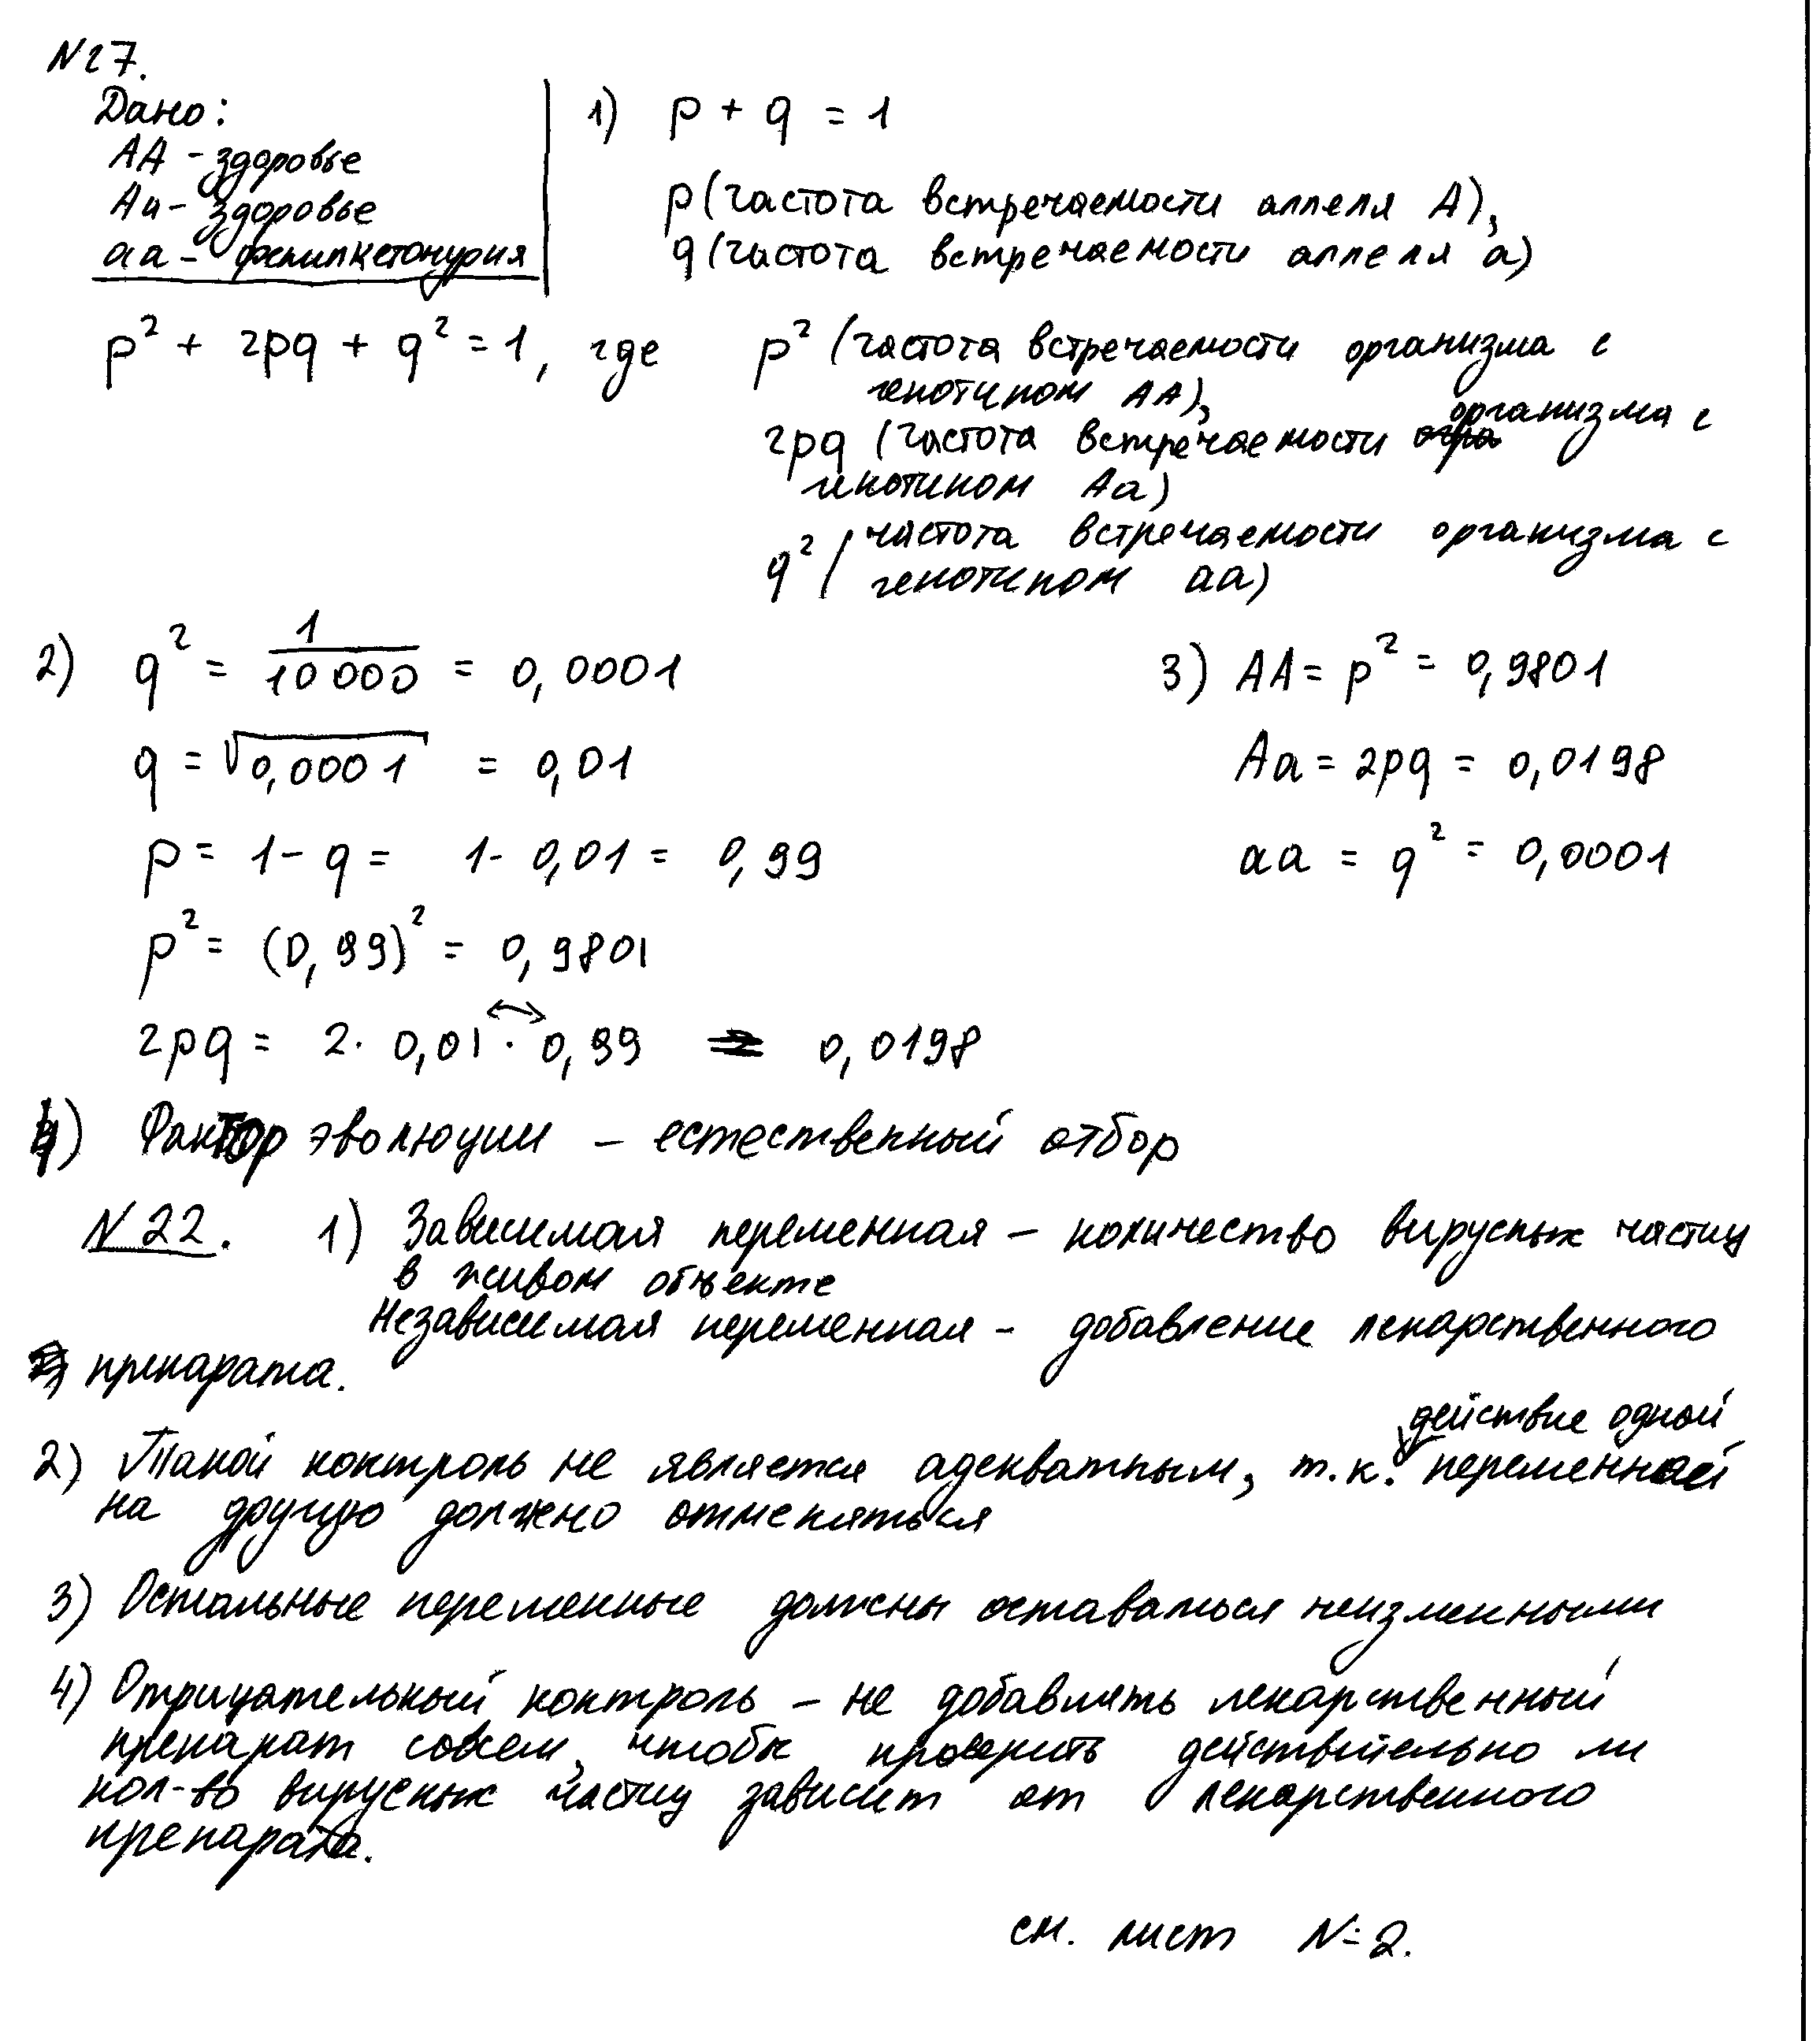 N27.
Дано:
АА - здоровье
Аа - здоровье
аа - фенилкетонурия
1) p + q = 1
p (частота встречаемости аллеля А),
q (частота встречаемости аллеля а)
p² + 2pq + q² = 1, где
p² (частота встречаемости организма с
генотипом АА),
2pq (частота встречаемости организма с
генотипом Аа)
q² (частота встречаемости организма с
генотипом аа)
2) q² = 1/10 000 = 0,0001
q = √0,0001 = 0,01
p = 1 - q = 1 - 0,01 = 0,99
p² = (0,99)² = 0,9801
2pq = 2 · 0,01 · 0,99 = 0,0198
3) AA = p² = 0,9801
Aa = 2pq = 0,0198
aa = q² = 0,0001
4) Фактор эволюции - естественный отбор
N 22. 1) Зависимая переменная - количество вирусных частиц
в живом объекте
Независимая переменная - добавление лекарственного
препарата.
2) Такой контроль не является адекватным, т.к. действие одной переменной
на другую должно отменяться
3) Остальные переменные должны оставаться неизменными
4) Отрицательный контроль - не добавлять лекарственный
препарат совсем, чтобы проверить действительно ли
кол-во вирусных частиц зависит от лекарственного
препарата.
см. лист № 2.